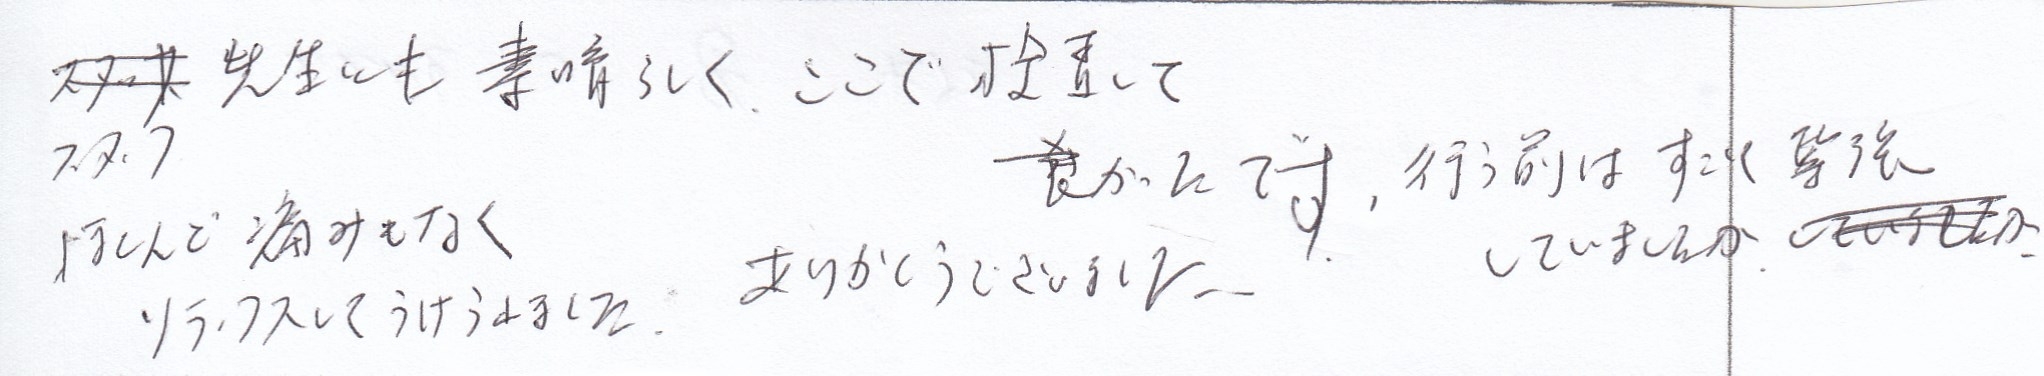 先生にも素晴らしく、ここで検査して
スタッフ
良かったです、行う前はすごく緊張
していましたが、
ほとんど痛みもなく
リラックスしてうけられました。
ありがとうございました